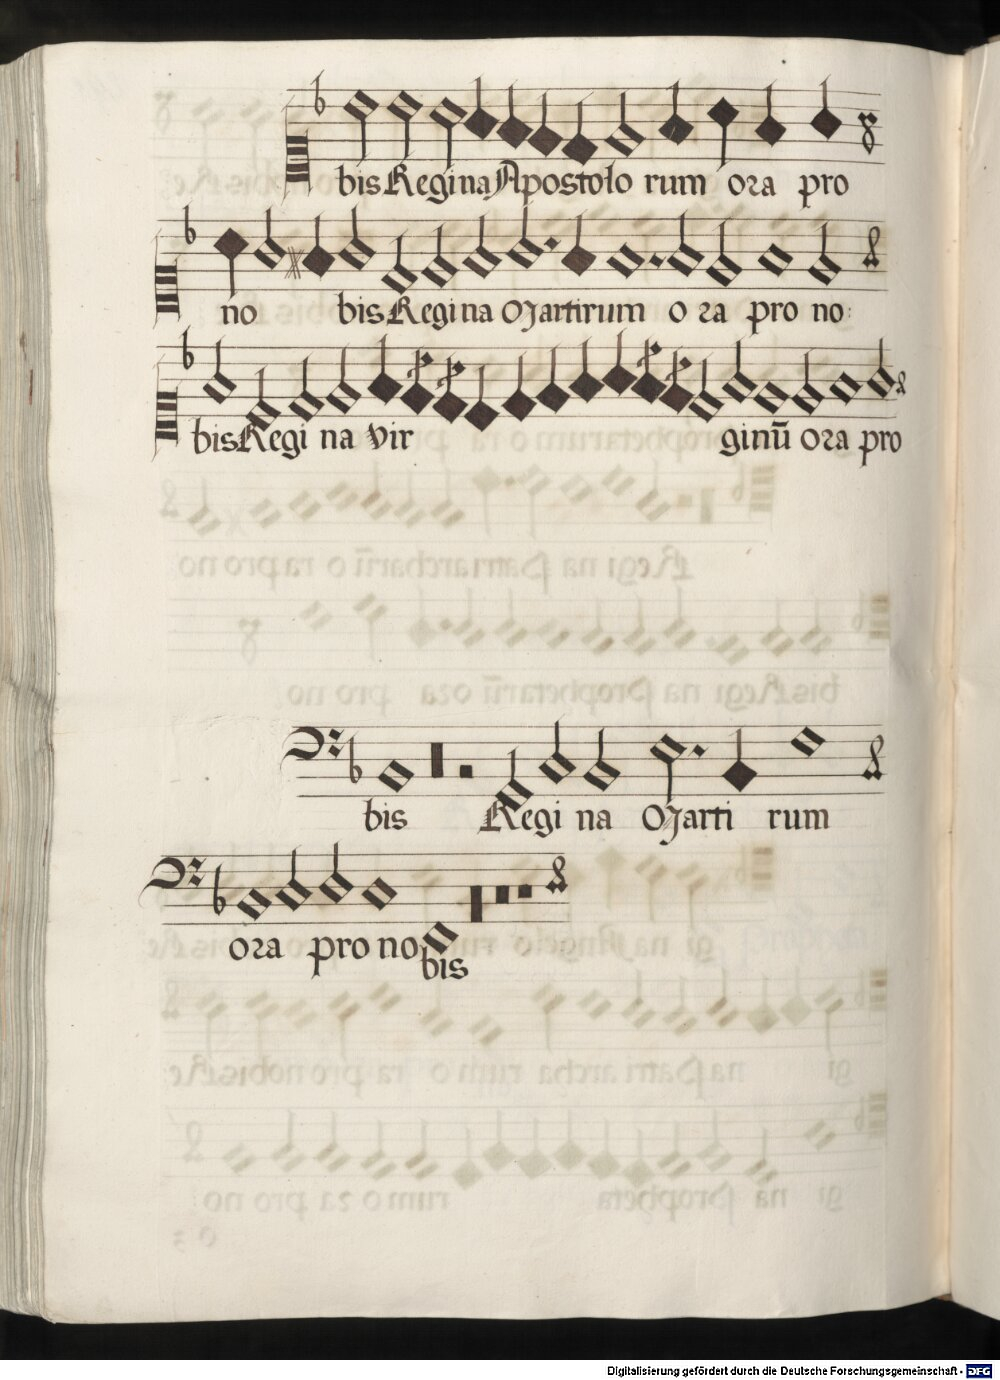 bis Regina Apostolo rum ora pro
no bis Regina Martirum o ra pro no:
bis Regi na vir ginū ora pro
bis Regi na Marti rum
ora pro no bis
Digitalisierung gefördert durch die Deutsche Forschungsgemeinschaft - DFG